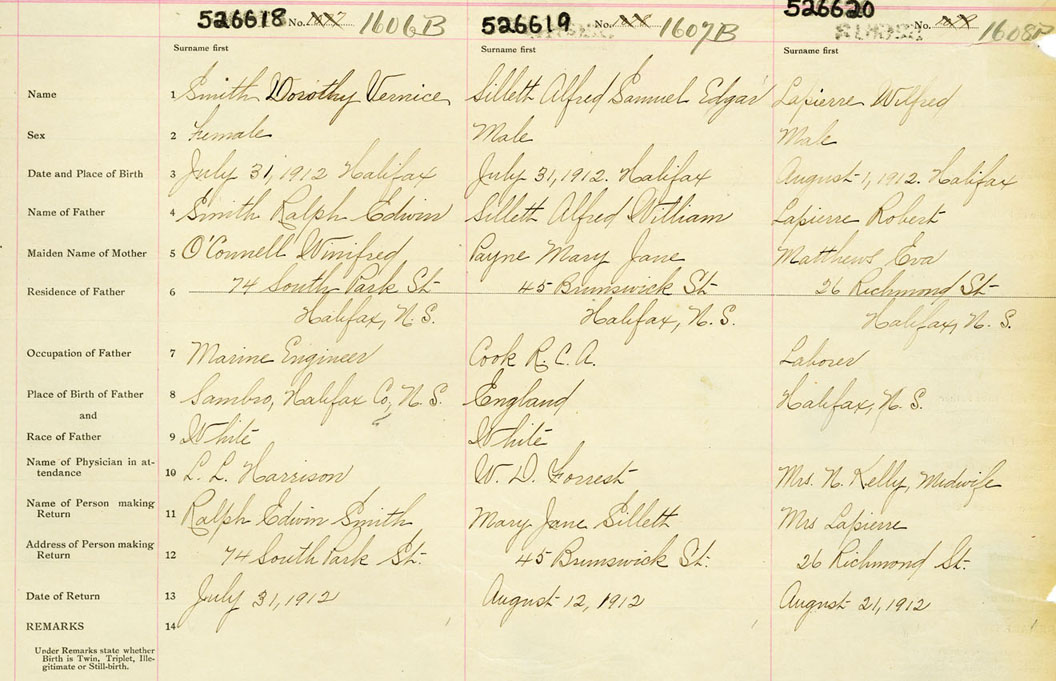 526618 No. 1606B 526619 No. 1607B 526620 No. 1608B
Surname first Surname first Surname first
Name 1 Smith Dorothy Vernice Sillett Alfred Samuel Edgar Lapierre Wilfred
Sex 2 Female Male Male
Date and Place of Birth 3 July 31, 1912 Halifax July 31, 1912. Halifax August 1, 1912. Halifax
Name of Father 4 Smith Ralph Edwin Sillett Alfred William Lapierre Robert
Maiden Name of Mother 5 O'Connell Winifred Payne Mary Jane Matthews Eva
Residence of Father 6 74 South Park St 45 Brunswick St 26 Richmond St
Halifax, N. S. Halifax, N. S. Halifax, N. S.
Occupation of Father 7 Marine Engineer Cook R. C. A. Laborer
Place of Birth of Father 8 Sambro, Halifax Co, N. S. England Halifax, N. S.
and
Race of Father 9 White White
Name of Physician in at-
tendance 10 L. L. Harrison W. D. Forrest Mrs. N. Kelly, Midwife
Name of Person making
Return 11 Ralph Edwin Smith Mary Jane Sillett Mrs Lapierre
Address of Person making
Return 12 74 South Park St. 45 Brunswick St. 26 Richmond St.
Date of Return 13 July 31, 1912 August 12, 1912 August 21, 1912
REMARKS 14
Under Remarks state whether
Birth is Twin, Triplet, Ille-
gitimate or Still-birth.